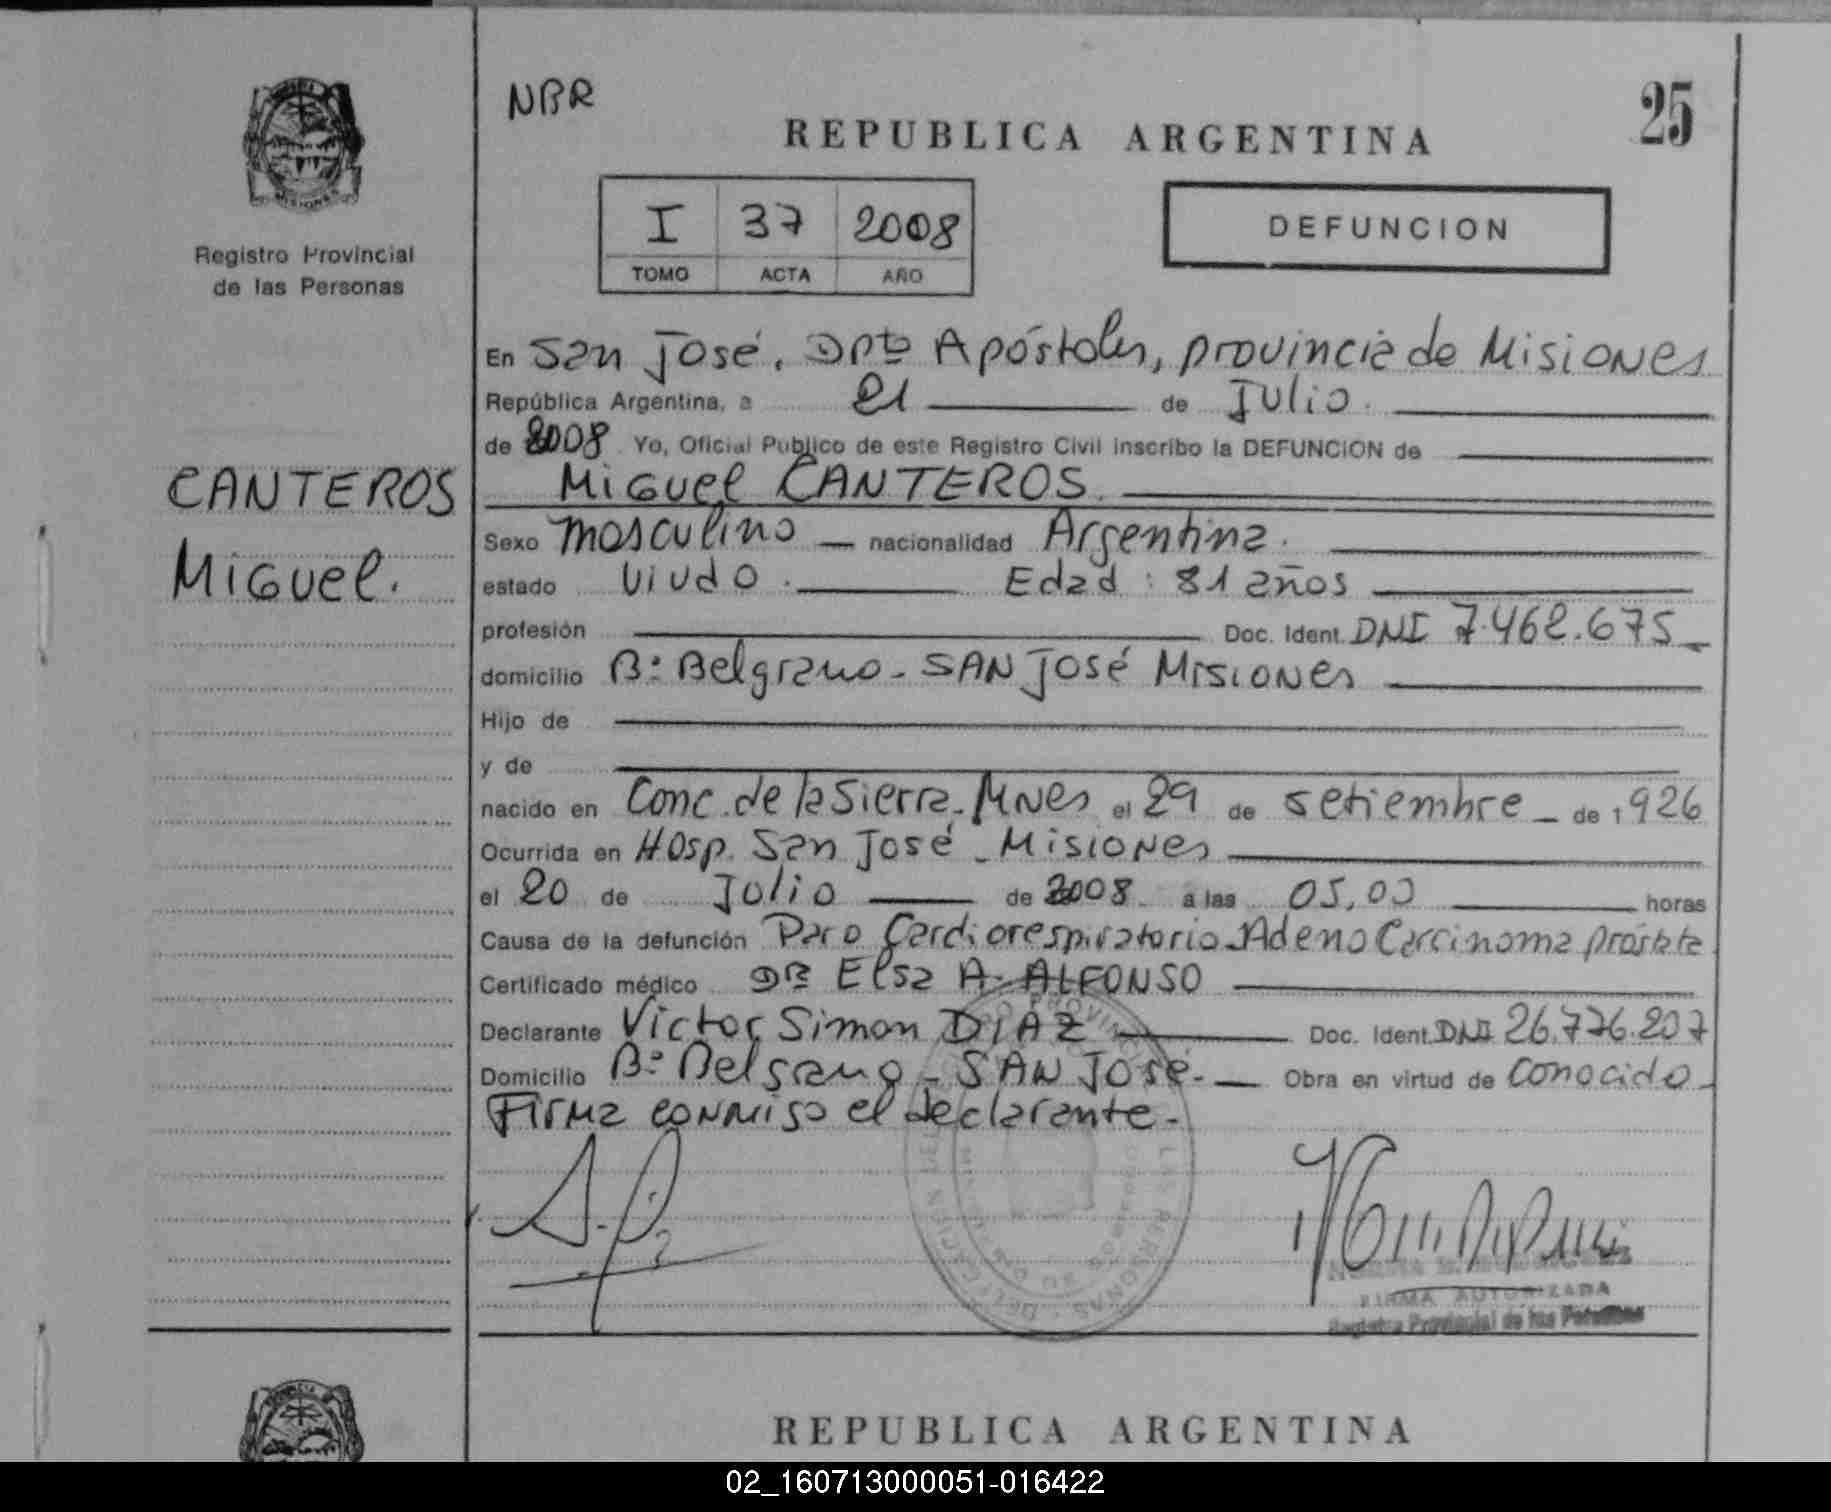 NBR
25
REPUBLICA ARGENTINA
I 37 2008
TOMO ACTA AÑO
DEFUNCION
Registro Provincial
de las Personas
CANTEROS
Miguel.
En San José, Dpto Apóstoles, provincia de Misiones
República Argentina, a 21 de Julio.
de 2008. Yo, Oficial Publico de este Registro Civil inscribo la DEFUNCION de
Miguel CANTEROS.
Sexo masculino nacionalidad Argentina.
estado Viudo. Edad: 81 años
profesión Doc. Ident. DNI 7.462.675
domicilio B° Belgrano - SAN José Misiones
Hijo de
y de
nacido en Conc. de la Sierra. Mnes el 29 de setiembre de 1926
Ocurrida en Hosp. San José - Misiones
el 20 de Julio de 2008 a las 05,00 horas
Causa de la defunción Paro Cardiorespiratorio Adeno Carcinoma próstata
Certificado médico Dra Elsa A. ALFONSO
Declarante Victor Simon DIAZ Doc. Ident. DNI 26.776.207
Domicilio B° Belgrano - SAN José. Obra en virtud de conocido
Firma conmigo el declarante.
FIRMA AUTORIZADA
Registro Provincial de las Personas
REPUBLICA ARGENTINA
02_160713000051-016422